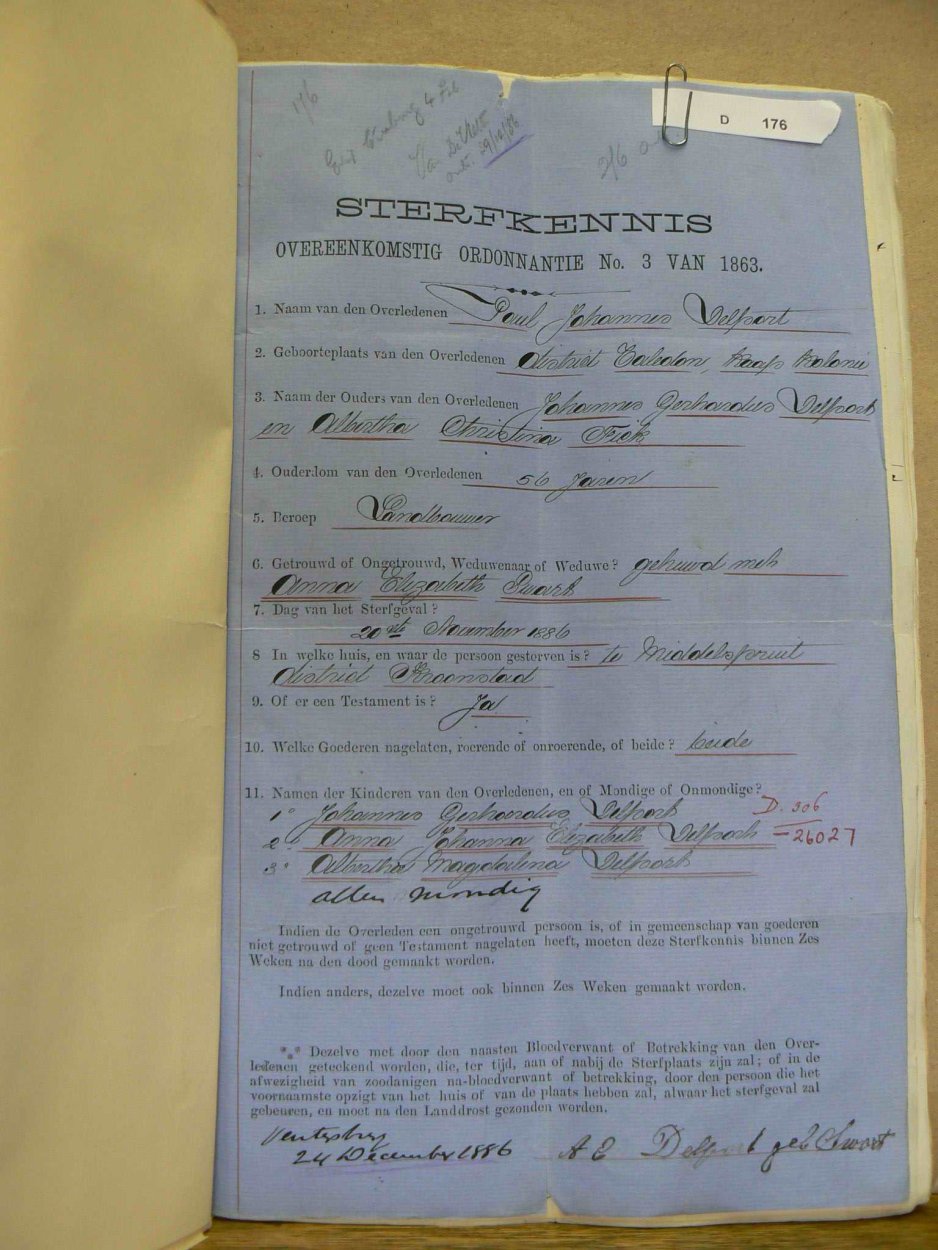 D 176
1/6
29/12/86
STERFKENNIS
OVEREENKOMSTIG ORDONNANTIE No. 3 VAN 1863.
1. Naam van den Overledenen Paul Johannes Delport
2. Geboorteplaats van den Overledenen district Caledon, Kaap Kolonie
3. Naam der Ouders van den Overledenen Johannes Gerhardus Delport
en Albertha Christina Fick
4. Ouderdom van den Overledenen 56 Jaren
5. Beroep Landbouwer
6. Getrouwd of Ongetrouwd, Weduwenaar of Weduwe? gehuwd met
Anna Elizabeth Swart
7. Dag van het Sterfgeval?
20ste November 1886
8 In welke huis, en waar de persoon gesterven is? te Middelspruit
district Kroonstad
9. Of er een Testament is? Ja
10. Welke Goederen nagelaten, roerende of onroerende, of beide? beide
11. Namen der Kinderen van den Overledenen, en of Mondige of Onmondige?
1° Johannes Gerhardus Delport D. 306
2° Anna Johanna Elizabeth Delport — 26027
3° Albertha Magdalena Delport
allen mondig
Indien de Overleden een ongetrouwd persoon is, of in gemeenschap van goederen
niet getrouwd of geen Testament nagelaten heeft, moeten deze Sterfkennis binnen Zes
Weken na den dood gemaakt worden.
Indien anders, dezelve moet ook binnen Zes Weken gemaakt worden.
*** Dezelve met door den naasten Bloedverwant of Betrekking van den Over-
ledenen geteekend worden, die, ter tijd, aan of nabij de Sterfplaats zijn zal; of in de
afwezigheid van zoodanigen na-bloedverwant of betrekking, door den persoon die het
voornaamste opzigt van het huis of van de plaats hebben zal, alwaar het sterfgeval zal
gebeuren, en moet na den Landdrost gezonden worden.
Ventersburg
24 December 1886 A E Delport geb Swart